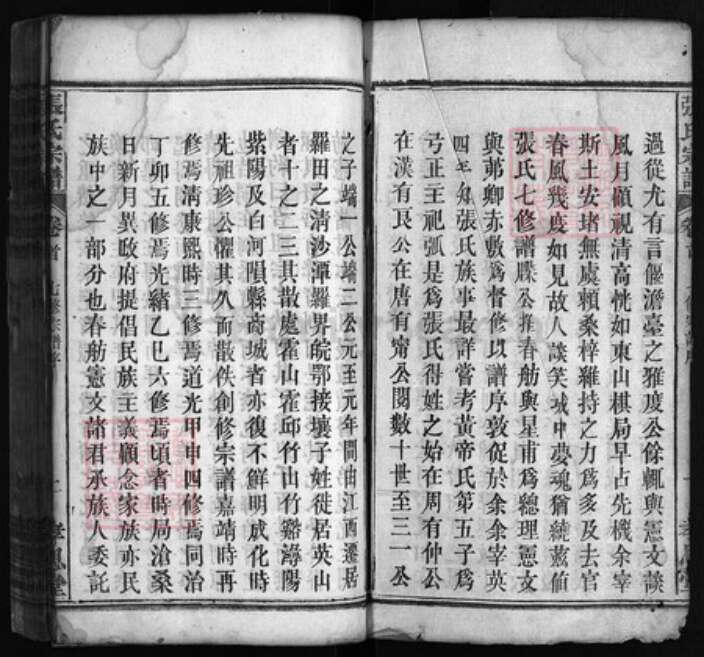 過從尤有言偃澹臺之雅度公餘輒與憲文談
風月顧視清高恍如東山棋局早占先機余宰
斯土安堵無虞賴桑梓維持之力為多及去官
春風幾度如見故人談笑城中夢魂猶繞茲值
張氏七修譜牒公推春舫與星甫為總理憲文
與苐卿赤敷為督修以譜序敦促於余余宰英
四年知張氏族事最詳嘗考黃帝氏第五子為
弓正主祀弧是為張氏得姓之始在周有仲公
在漢有良公在唐有甯公閱數十世至三一公
之子端一公端二公元至元年間由江西遷居
羅田之清沙潭羅界皖鄂接壤子姓徙居英山
者十之二三其散處霍山霍邱竹山竹谿潦陽
紫陽及白河隕縣商城者亦復不鮮明成化時
先祖珍公懼其久而散佚創修宗譜嘉靖時再
修焉清康熙時三修焉道光甲申四修焉同治
丁卯五修焉光緒乙巳六修焉頃者時局滄桑
日新月異政府提倡民族主義顧念家族亦民
族中之一部分也春舫憲文諸君承族人委託
張氏宗譜
卷首
七修宗譜序
二
孝思堂